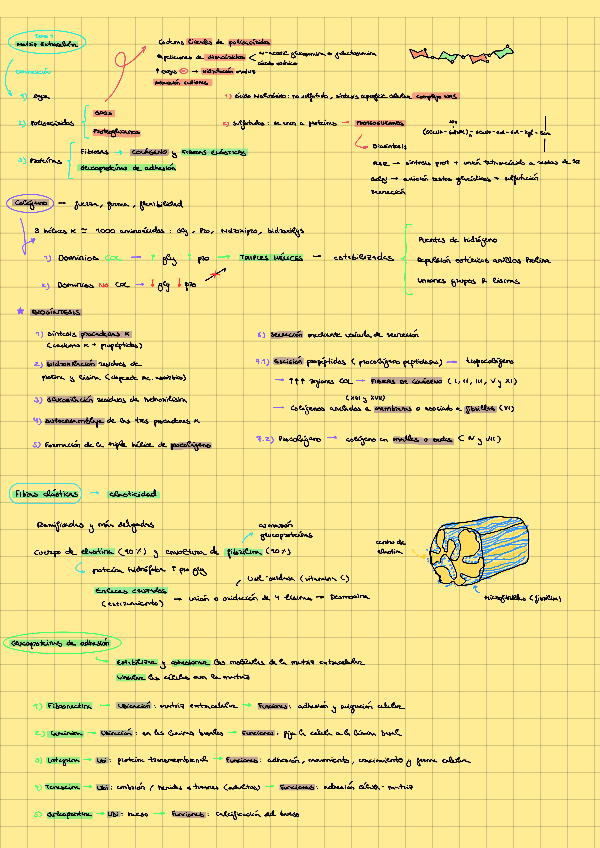 TEMA 7
Matriz Extracelular
COMPOSICIÓN
1) Agua
2) Polisacáridos
GAGs
Proteoglucanos
3) Proteínas
Fibrosas → COLÁGENO y FIBRAS ELÁSTICAS
Glucoproteínas de adhesión
Cadenas lineales de polisacáridos
Repeticiones de disacáridos
ácido urónico
1) Ácido Hialurónico: no sulfatado, síntesis superficie celular
2) Sulfatados: se unen a proteínas → PROTEOGLUCANOS
Biosíntesis
RER → síntesis prot + unión tetrasacárido a restos de
Golgi → adición restos glucídicos + sulfatación
secreción
Colágeno → fuerza, forma, flexibilidad
3 hélices α ≈ 1000 aminoácidos: Gly, Pro, Hidroxipro, hidroxilys
1) Dominios COL → ↑ gly ↑ pro → TRIPLES HÉLICES → estabilizadas
2) Dominios NO COL → ↓ gly ↓ pro
Puentes de hidrógeno
Repulsión estérica anillos Prolina
Uniones grupos R lisinas
★ BIOSÍNTESIS
1) Síntesis procadenas α
(cadena α + propéptidos)
2) hidroxilación residuos de
prolina y lisina (depende ác. ascórbico)
3) Glucosilación residuos de hidroxilisina
4) Autoensamblaje de las tres procadenas α
5) Formación de la triple hélice de procolágeno
6) Secreción mediante vesícula de secreción
7.1) Escisión propéptidos (procolágeno peptidasas) → tropocolágeno
→ ↑↑↑ regiones COL → FIBRAS DE COLÁGENO (I, II, III, V y XI)
(XVII y XVIII)
→ Colágenos anclados a membrana o asociado a fibrillas (XI)
7.2) Procolágeno → colágeno en mallas o redes (IV y VII)
Fibras elásticas → elasticidad
Ramificadas y más delgadas
Cuerpo de elastina (90%) y envoltura de fibrilina (10%)
glucoproteínas
proteína hidrófoba ↑ pro gly
Lisil oxidasa (vitamina C)
Enlaces cruzados
(estiramiento) → unión o oxidación de 4 lisinas → Desmosina
centro de
elastina
Microfibrillas (fibrilina)
Glucoproteínas de adhesión
Estabilizan y cohesionan las moléculas de la matriz extracelular
Vinculan las células con la matriz
1) Fibronectina → Ubicación: matriz extracelular → Funciones: adhesión y migración celular
2) Laminina → Ubicación: en las láminas basales → Funciones: fija la célula a la lámina basal
3) Integrina → Ubi: proteína transmembranal → Funciones: adhesión, movimiento, crecimiento y forma celular
4) Tenascina → Ubi: embrión / heridas o tumores (adultos) → Funciones: adhesión célula-matriz
5) Osteopontina → Ubi: hueso → Funciones: calcificación del hueso